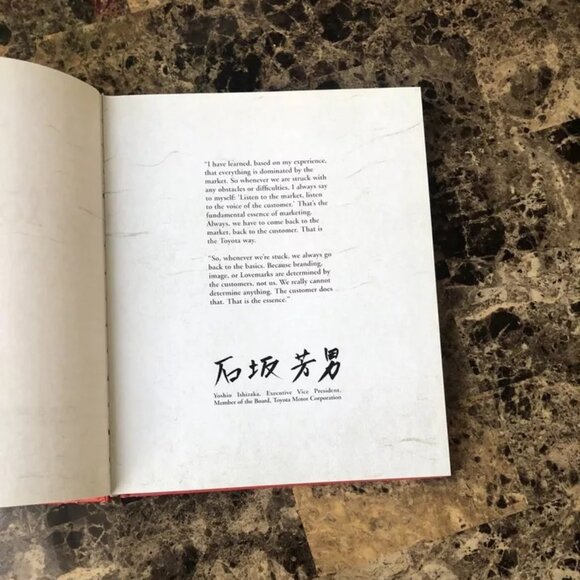 "I have learned, based on my experience,
that everything is dominated by the
market. So whenever we are struck with
any obstacles or difficulties, I always say
to myself: 'Listen to the market, listen
to the voice of the customer.' That's the
fundamental essence of marketing.
Always, we have to come back to the
market, back to the customer. That is
the Toyota way.
"So, whenever we're stuck, we always go
back to the basics. Because branding,
image, or Lovemarks are determined by
the customers, not us. We really cannot
determine anything. The customer does
that. That is the essence."
石坂 芳男
Yoshio Ishizaka, Executive Vice President,
Member of the Board, Toyota Motor Corporation